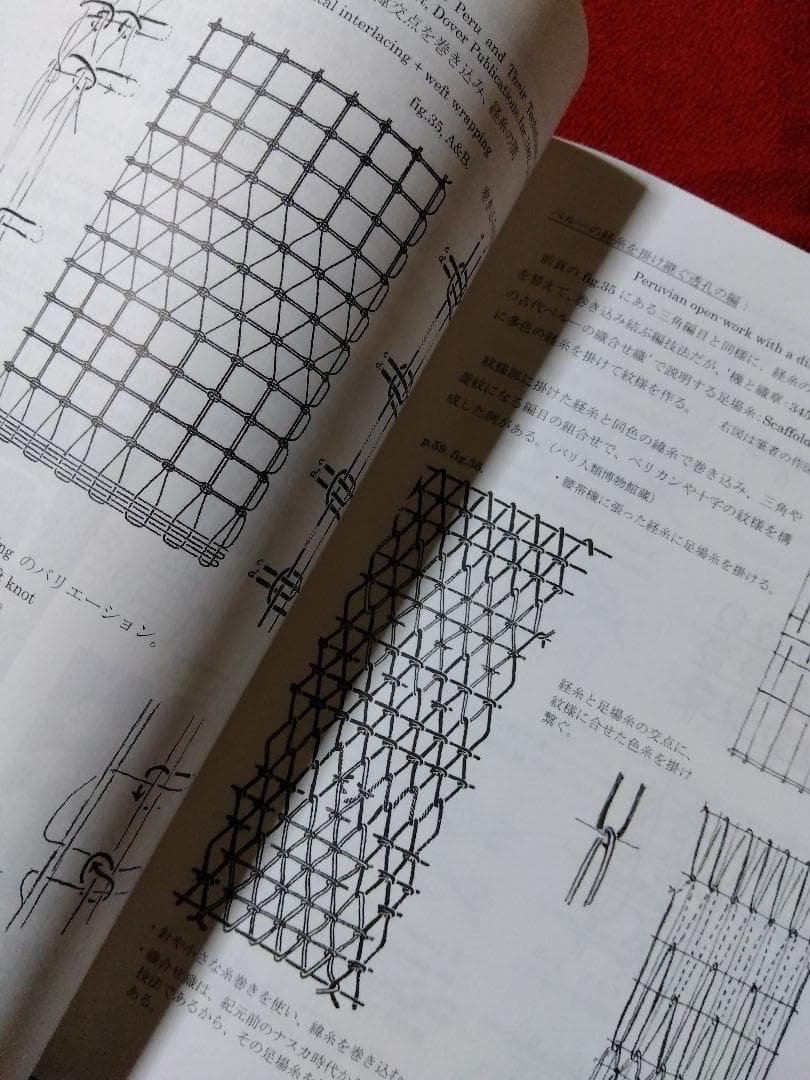 Peru and Their Tech
, Dover Publications, Inc.
交点を巻き込み、経糸の間
tal interlacing + weft wrapping
fig.35, A&B,
巻き
ng のバリエーション。
knot
ペルーの経糸を掛け継ぐ透孔の編：
Peruvian open work with a di
前頁の fig.35 にある三角編目と同様に、経糸
を替えて、巻き込み結ぶ編技法だが、'機と織章：34
の古代ペルーの織合せ織'で説明する足場糸:Scaffol
に多色の経糸を掛けて紋様を作る。
右図は筆者の作
紋織部に掛けた経糸と同色の緯糸で巻き込み、三角や
菱紋になる編目の組合せで、ペリカンや十字の紋様を構
成した例がある。(パリ人類博物館蔵)
・腰帯機に張った経糸に足場糸を掛ける。
p.59. fig.36.
経糸と足場糸の交点に、
紋様に合せた色糸を掛け
繋ぐ。
・針や小さな糸巻きを使い、緯糸を巻き込む
・織合せ織は、紀元前のナスカ時代か
技法であるから、その足場糸を
ある。